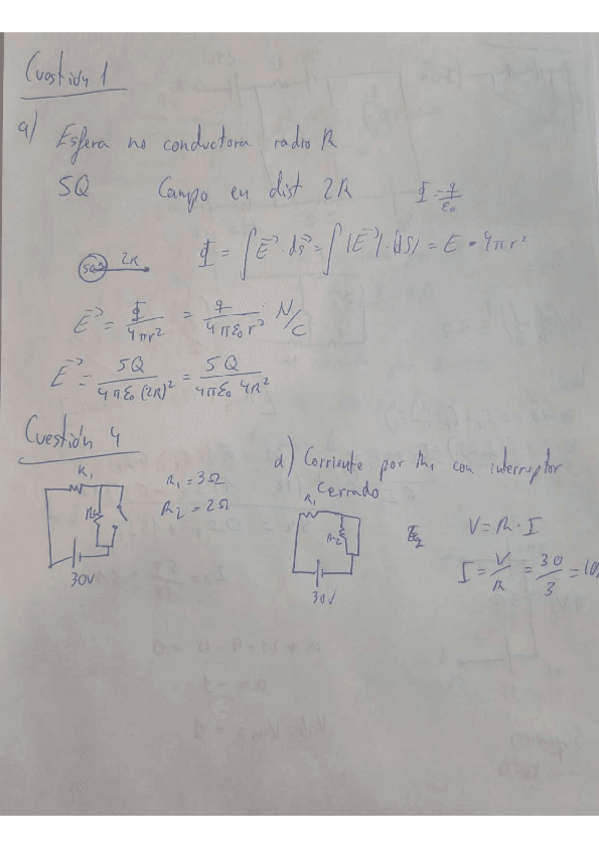 Cuestión 1
a) Esfera no conductora radio R
5Q Campo en dist 2R Φ = q/ε₀
5Q 2R Φ = ∫ E⃗ · ds⃗ = ∫ |E⃗| · |ds| = E · 4πr²
E⃗ = Φ/4πr² = q/4πε₀r² N/C
E⃗ = 5Q/4πε₀(2R)² = 5Q/4πε₀ 4R²
Cuestión 4
R₁ R₂ 30V
R₁ = 3Ω
R₂ = 2Ω
a) Corriente por R₁ con interruptor
cerrado
R₁ R₂ 30V
V = R · I
I = V/R = 30/3 = 10